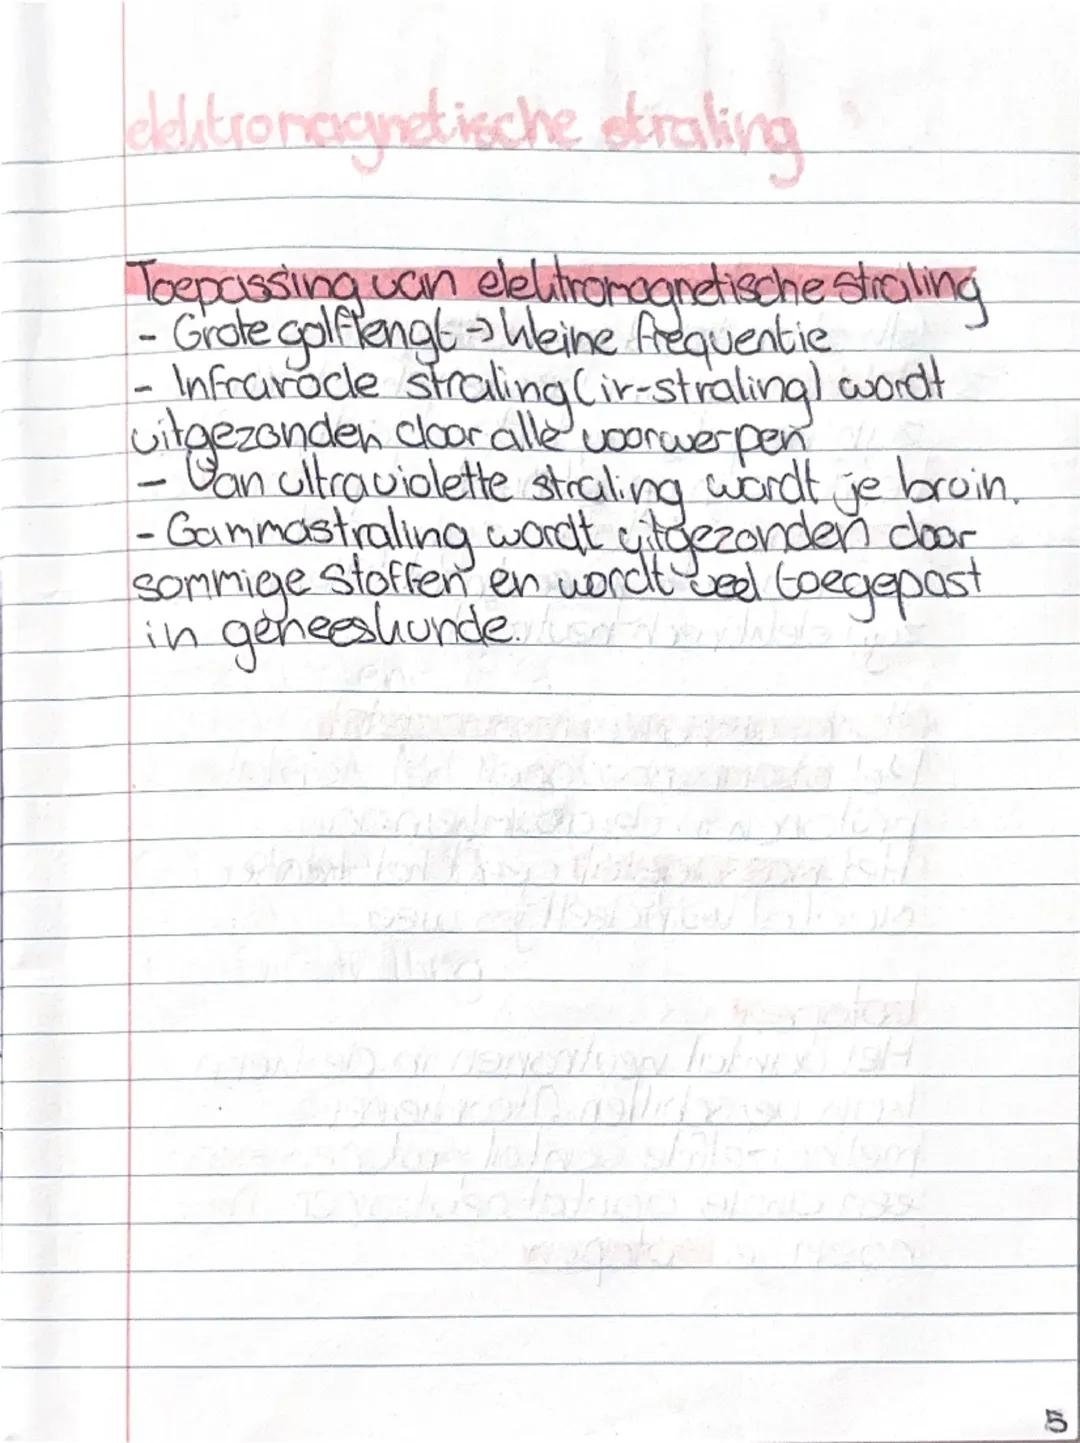 elektromagnetische straling
Toepassing van elektromagnetische straling
- Grote golflengt → kleine frequentie
- Infrarode straling (ir-straling) wordt
uitgezonden door alle voorwerpen
- Van ultraviolette straling wordt je bruin.
- Gammastraling wordt uitgezonden door
sommige stoffen en wordt veel toegepast
in geneeskunde.
5